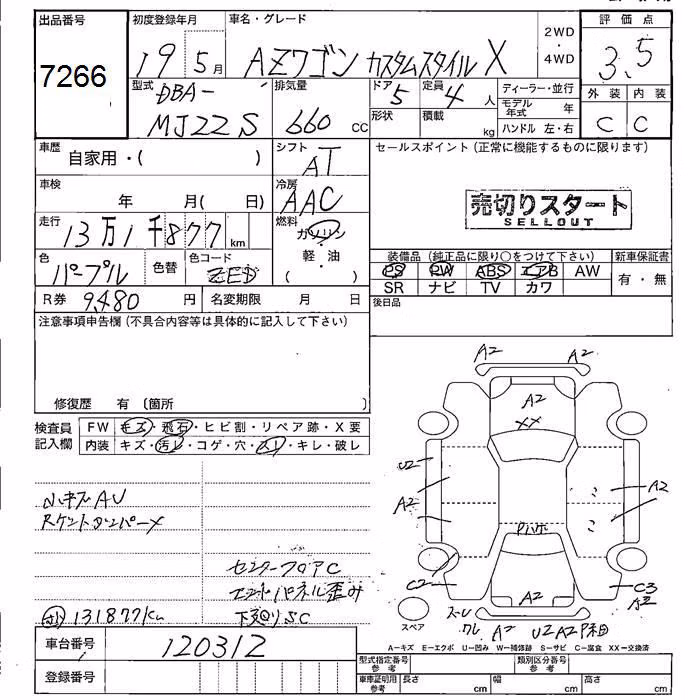 出品番号
7266
初度登録年月
19 5月
車名・グレード
AZワゴン カスタムスタイル X
2WD
・
4WD
評価点
3.5
型式
DBA-
MJ22S
排気量
660 CC
ドア 定員
5 4 人
形状 積載
kg
ディーラー・並行
モデル年式 年
ハンドル 左・右
外装 内装
C C
車歴 自家用・( )
シフト
AT
セールスポイント(正常に機能するものに限ります)
車検
年 月( 日)
冷房
AAC
売切りスタート
SELLOUT
走行
13万1千877 km
燃料
ガソリン
・
軽・油
( )
色
パープル
色替
色コード
ZED
装備品(純正品に限り○をつけて下さい) 新車保証書
PS PW ABS エアB AW
有・無
SR ナビ TV カワ
R券 9,480 円 名変期限 月 日
後日品
注意事項申告欄(不具合内容等は具体的に記入して下さい)
修復歴 有(箇所 )
検査員記入欄
FW キズ・飛石・ヒビ割・リペア跡・X要
内装 キズ・汚レ・コゲ・穴・スレ・キレ・破レ
小キズAU
Rケントダンパーメ
センターフロアC
エンドパネル歪み
131877km 下廻りSC
A2 A2
A2
XX
U2
A2
A2
C2
A2
C3
A2
スペア
A2 U2 A2
A-キズ E-エクボ U-凹み W-補修跡 S-サビ C-腐食 XX-交換済
車台番号 120312
登録番号
型式指定番号 参考
類別区分番号 参考
車庫証明用 参考 長さ cm 幅 cm 高さ cm